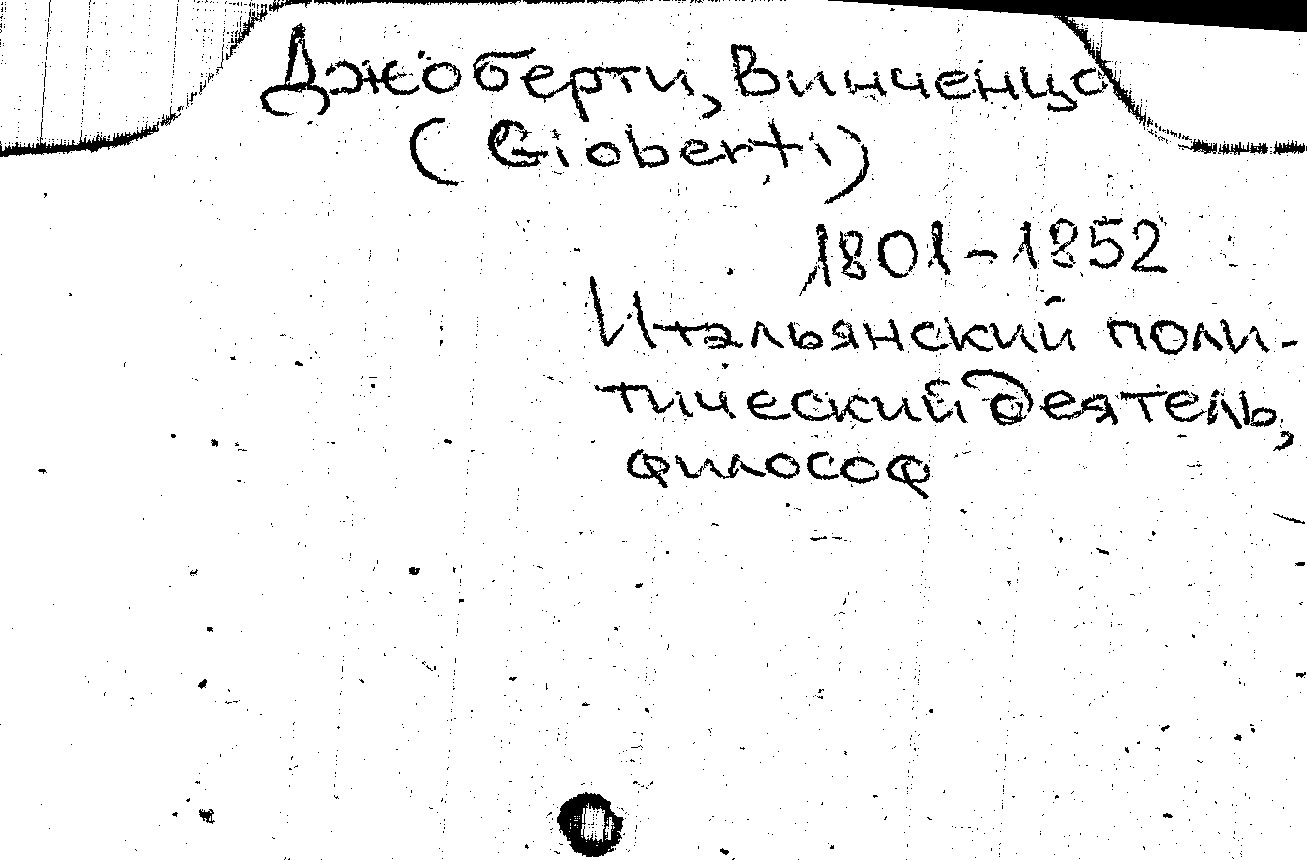 Джоберти, Винченцо
(Gioberti)
1801-1852
Итальянский поли-
тический деятель,
философ